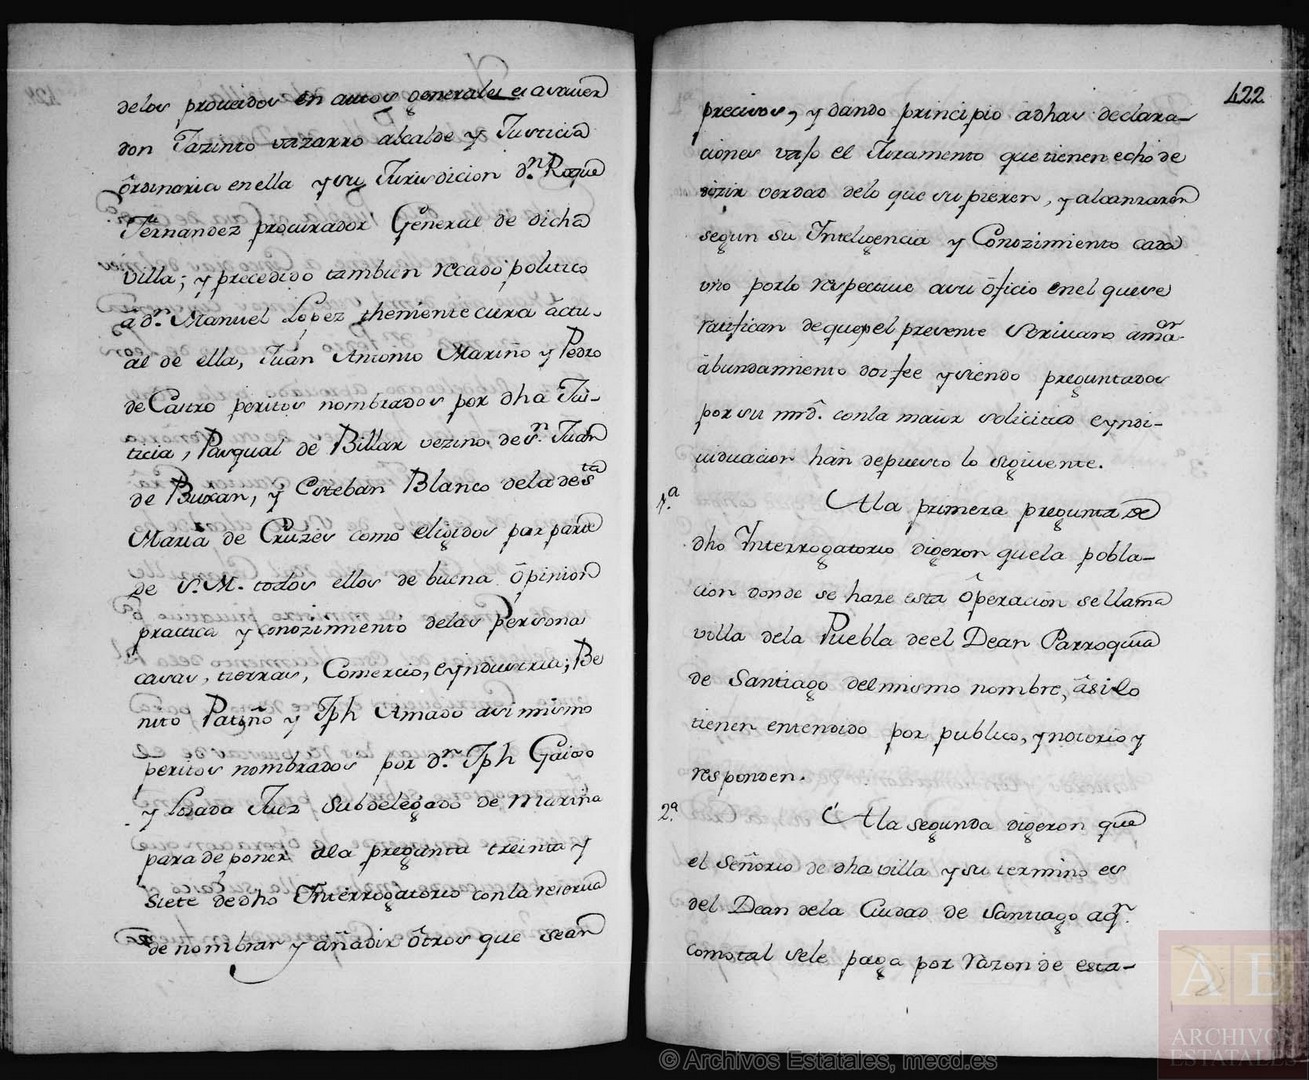 delos proueidos en autos generales es asauer
don Jazinto Vizarro alcalde y Justicia
ôrdinaria en ella y su Jurisdicion d.n Roque
Fernandez procurador General de dicha
villa; y precedido tambien recado politico
a d.n Manuel Lopez theniente cura actu-
al de ella, Juan Antonio Mariño y Pedro
de Castro peritos nombrados por dha Jus-
ticia, Pasqual de Billar vezino de S.n Juan
de Buxan, y Esteban Blanco dela de S.ta
Maria de Cruzes como eligidos por parte
de S. M. todos ellos de buena ôpinion
practica y conozimiento delas persona
casas, tierras, Comercio, e yndustria; Be
nito Patiño y Jph Amado asi mismo
peritos nombrados por d.n Jph Gaioso
y Losada Juez Subdelegado de marina
para deponer ala pregunta treinta y
Siete de dho Ynterrogatorio con la reserua
de nombrar y añadir ôtros que sean
422
precisos, y dando principio a dhas declara-
ciones vajo el Juramento que tienen echo de
dizir verdad delo que supieren, y alcanzaren
segun su Inteligencia y Conozimiento cada
vno porlo respectiue asu ôficio en el que se
ratifican de que yo el presente Scriuano a maor
âbundamiento doi fee y siendo preguntados
por su mrd. con la maior solicitud e yndi-
uiduacion han depuesto lo siguiente.
1.a Ala primera pregunta de
dho Ynterrogatorio digeron que la pobla-
cion donde se haze esta ôperacion se llama
villa dela Puebla de el Dean Parroquia
de Santiago del mismo nombre, âsi lo
tienen entendido por publico, y notorio y
responden.
2.a A la segunda digeron que
el Señorio de dha villa y su termino es
del Dean dela Ciudad de Santiago aq.n
como tal sele paga por razon de esta-
© Archivos Estatales, mecd.es
A E
ARCHIVOS
ESTATALES